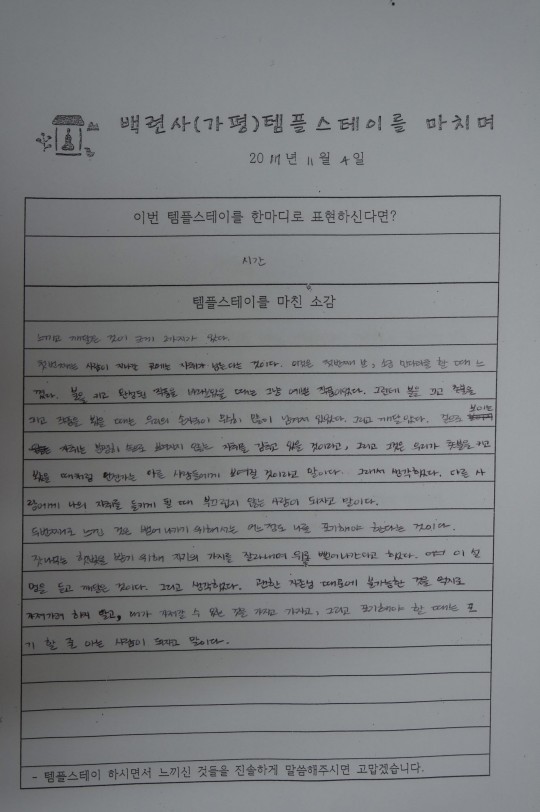 백련사(가평)템플스테이를 마치며
20 17년 11월 4일
이번 템플스테이를 한마디로 표현하신다면?
시간
템플스테이를 마친 소감
느끼고 깨달은 것이 크게 2가지가 있다.
첫번째는 사람이 지나간 곳에는 자취가 남는다는 것이다. 이것은 첫번째 밤, 만다라를 할 때 느
꼈다. 불을 켜고 완성된 작품을 바라보았을 때는 그냥 예쁜 작품이었다. 그런데 불을 끄고 촛불을
켜고 작품을 봤을 때는 우리의 손자국이 무척이 많이 남겨져 있었다. 그리고 깨달았다. 겉으로 보이는
자취는 분명히 눈으로 보여지지 않는 자취를 감추고 있을 것이라고, 그리고 그것은 우리가 촛불을 켜고
봤을 때처럼 언젠가는 다른 사람들에게 보여질 것이라고 말이다. 그래서 생각했다. 다른 사
람에게 나의 자취를 들키게 될 때 부끄럽지 않은 사람이 되자고 말이다.
두번째로 느낀 것은 뻗어 나가기 위해서는 어느정도 나를 포기해야 한다는 것이다.
잣나무는 햇빛을 받기 위해 자기의 가지를 잘라내며 위로 뻗어나간다고 했다. 이 설
명을 듣고 깨달은 것이다. 그리고 생각했다. 괜한 자존심 때문에 불가능한 것을 억지로
가져가려 하지 말고, 내가 가져갈 수 있는 것을 가지고 가자고, 그리고 포기해야 할 때는 포
기 할 줄 아는 사람이 되자고 말이다.
- 템플스테이 하시면서 느끼신 것들을 진솔하게 말씀해주시면 고맙겠습니다.